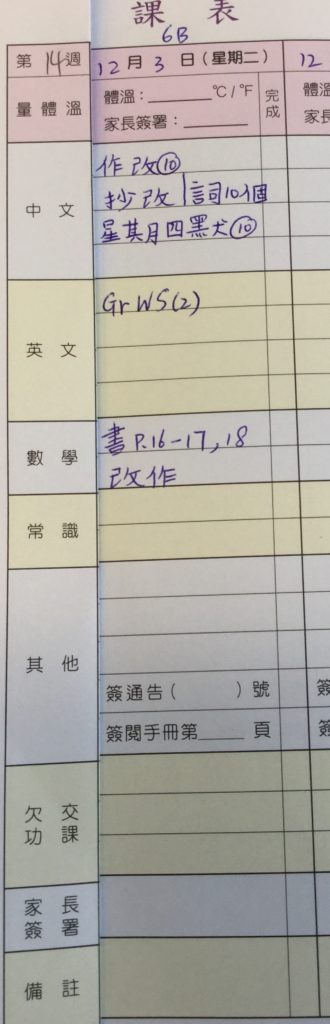 課表
6B
第14週
12月3日(星期二)
12
量體溫
體溫:______°C/°F
家長簽署:______
完成
體溫
家長
中文
作改⑩
抄改|詞詞10個
星其月四黑犬⑩
英文
Gr WS(2)
數學
書P.16-17,18
改作
常識
其他
簽通告( )號
簽
簽閱手冊第____頁
簽
欠交功課
家長簽署
備註